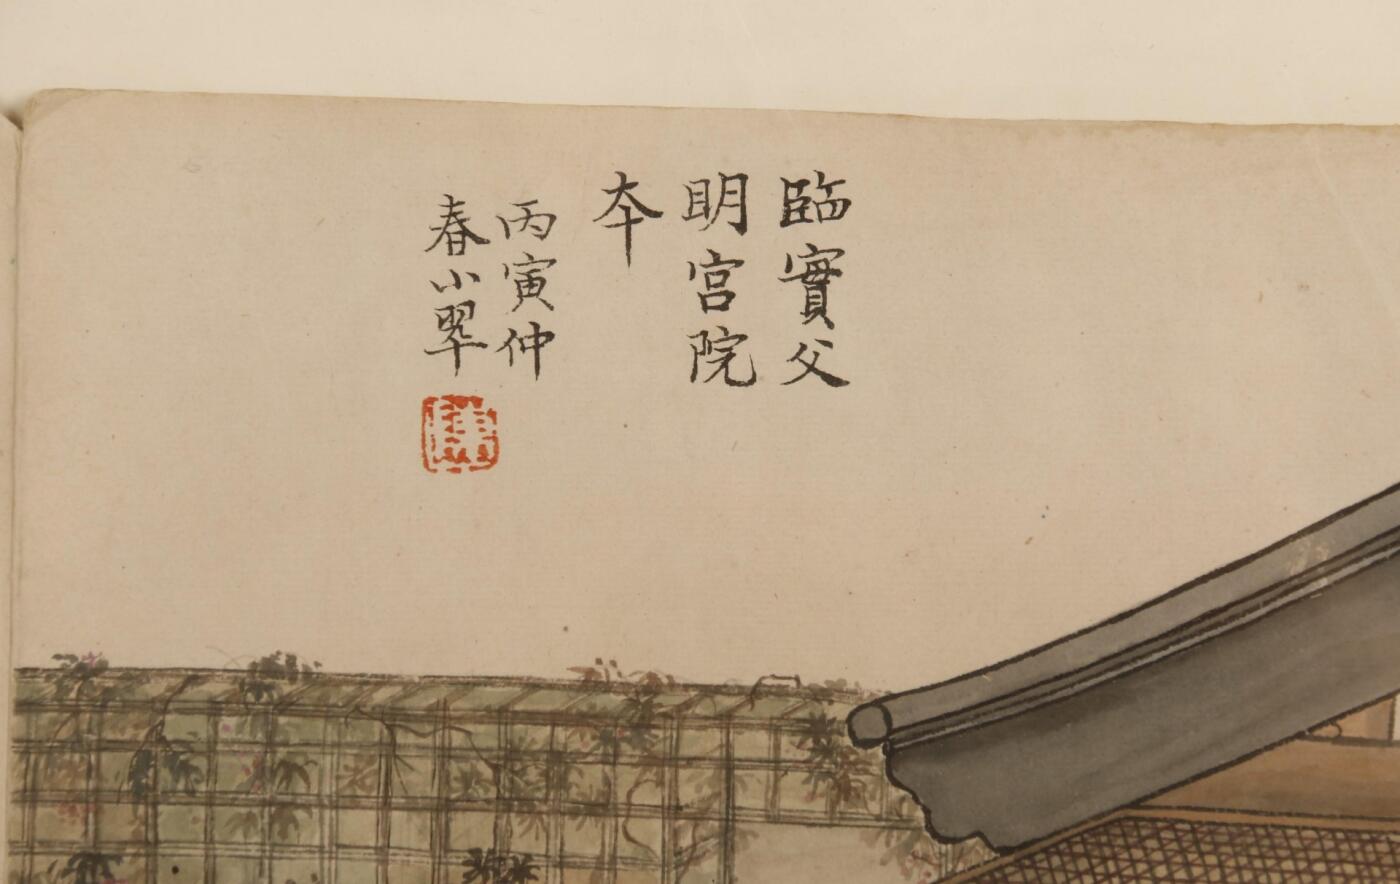 臨實父
明宮院
本
丙寅仲
春小翠